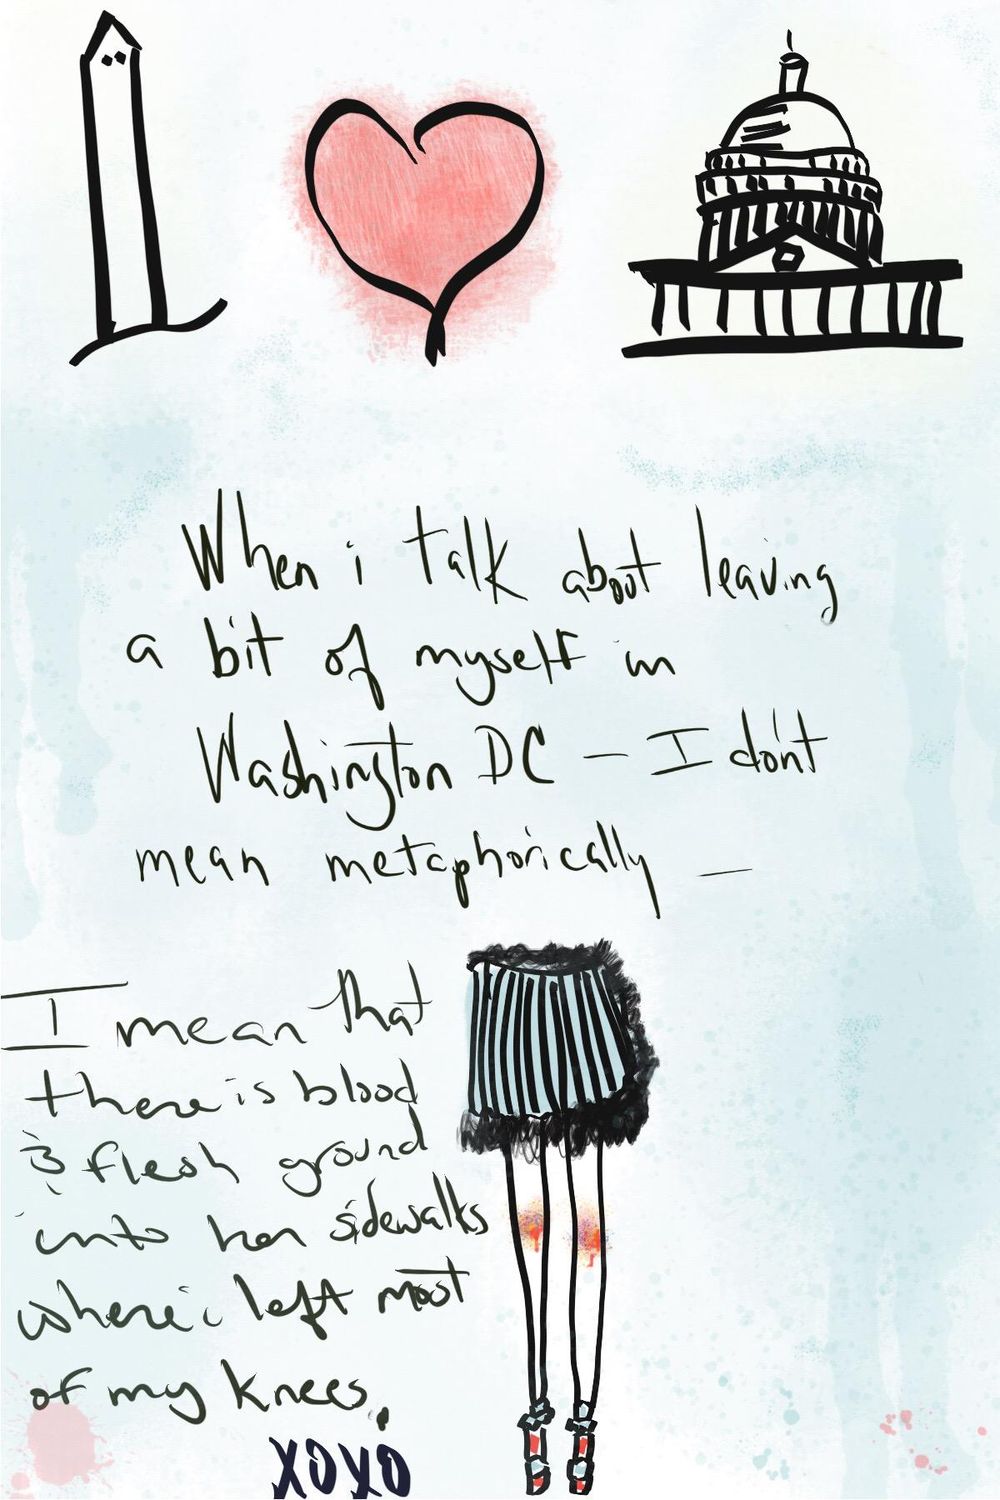 When i talk about leaving
a bit of myself in
Washington DC – I don't
mean metaphorically –
I mean that
there is blood
& flesh ground
into her sidewalks
where i left most
of my knees.
XOXO